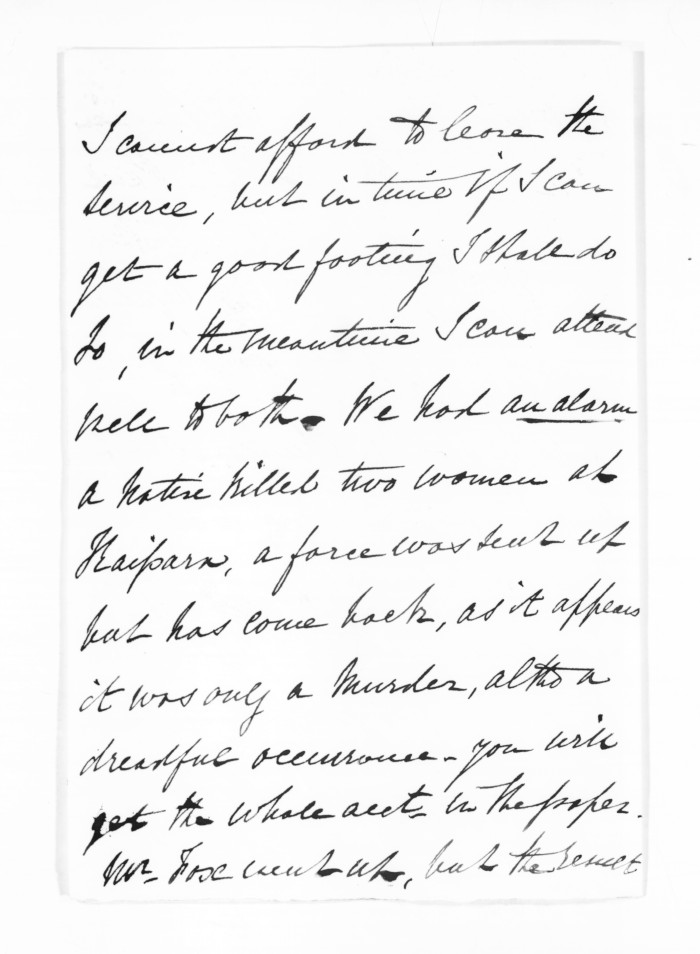 I cannot afford to leave the
service, but in time if I can
get a good footing I shall do
so, in the meantime I can attend
well to both. We had an alarm
a native killed two women at
Kaipara, a force was sent up
but has come back, as it appears
it was only a murder, altho a
dreadful occurrance - you will
get the whole acct. in the paper.
Mr. Fox went up, but the result